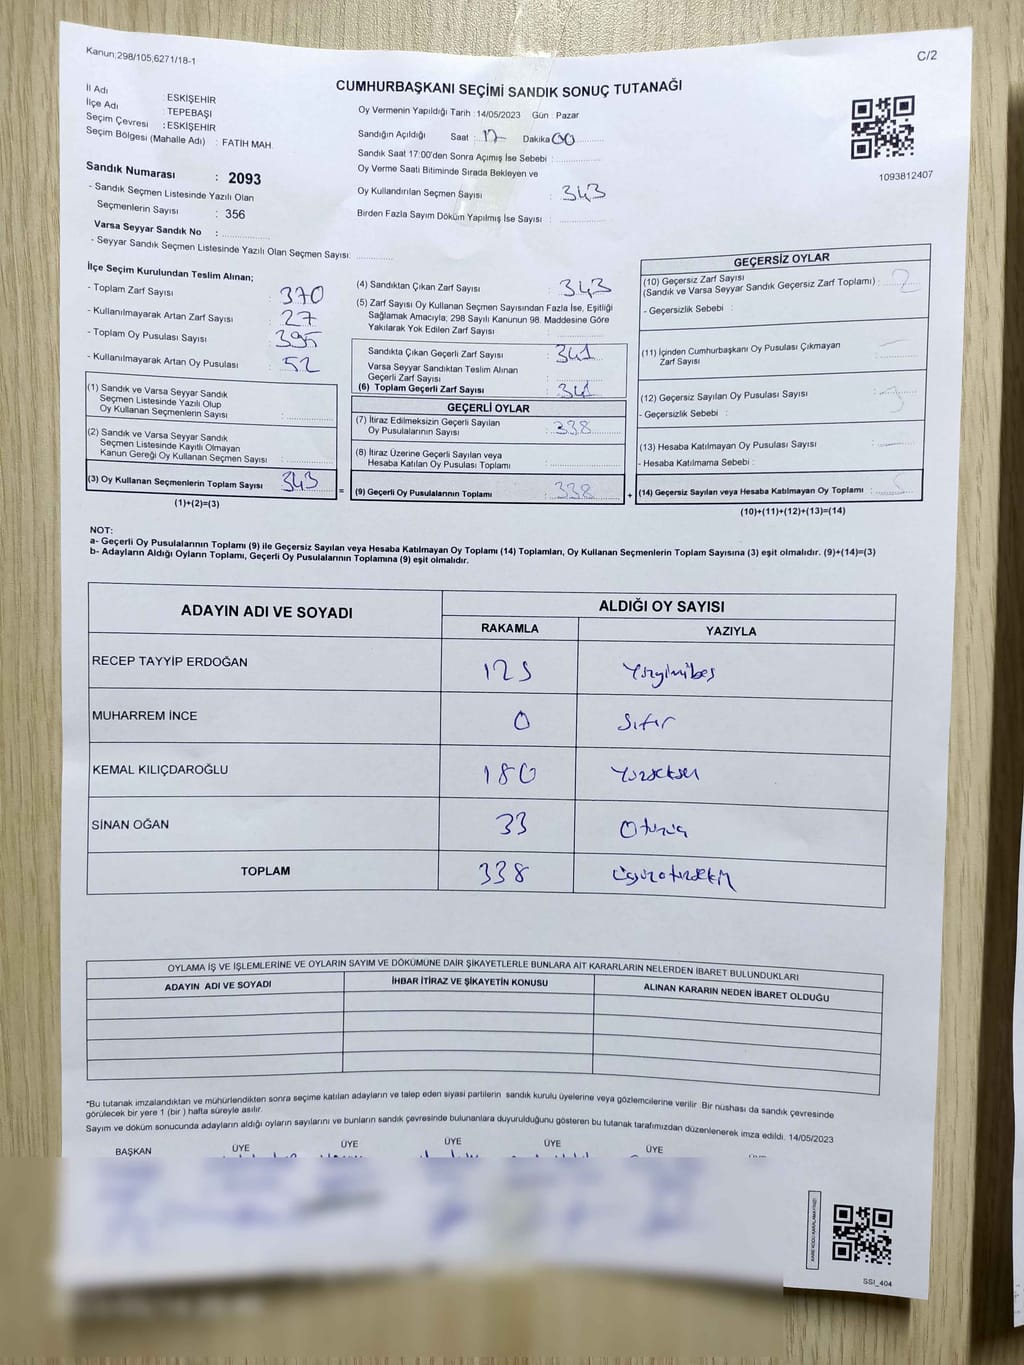 Kanun;298/105,6271/18-1
C/2
CUMHURBAŞKANI SEÇİMİ SANDIK SONUÇ TUTANAĞI
İl Adı : ESKİŞEHİR
İlçe Adı : TEPEBAŞI
Seçim Çevresi : ESKİŞEHİR
Seçim Bölgesi (Mahalle Adı) : FATİH MAH.
Sandık Numarası : 2093
- Sandık Seçmen Listesinde Yazılı Olan
Seçmenlerin Sayısı : 356
Varsa Seyyar Sandık No :
- Seyyar Sandık Seçmen Listesinde Yazılı Olan Seçmen Sayısı:
Oy Vermenin Yapıldığı Tarih : 14/05/2023 Gün : Pazar
Sandığın Açıldığı Saat : 17 Dakika 00
Sandık Saat 17:00'den Sonra Açımış İse Sebebi :
Oy Verme Saati Bitiminde Sırada Bekleyen ve
Oy Kullandırılan Seçmen Sayısı : 343
Birden Fazla Sayım Döküm Yapılmış İse Sayısı :
1093812407
İlçe Seçim Kurulundan Teslim Alınan;
- Toplam Zarf Sayısı : 370
- Kullanılmayarak Artan Zarf Sayısı : 27
- Toplam Oy Pusulası Sayısı : 395
- Kullanılmayarak Artan Oy Pusulası : 52
(1) Sandık ve Varsa Seyyar Sandık
Seçmen Listesinde Yazılı Olup
Oy Kullanan Seçmenlerin Sayısı :
(2) Sandık ve Varsa Seyyar Sandık
Seçmen Listesinde Kayıtlı Olmayan
Kanun Gereği Oy Kullanan Seçmen Sayısı :
(3) Oy Kullanan Seçmenlerin Toplam Sayısı : 343
(1)+(2)=(3)
(4) Sandıktan Çıkan Zarf Sayısı : 343
(5) Zarf Sayısı Oy Kullanan Seçmen Sayısından Fazla İse, Eşitliği
Sağlamak Amacıyla; 298 Sayılı Kanunun 98. Maddesine Göre
Yakılarak Yok Edilen Zarf Sayısı :
Sandıkta Çıkan Geçerli Zarf Sayısı : 341
Varsa Seyyar Sandıktan Teslim Alınan
Geçerli Zarf Sayısı :
(6) Toplam Geçerli Zarf Sayısı : 341
GEÇERLİ OYLAR
(7) İtiraz Edilmeksizin Geçerli Sayılan
Oy Pusulalarının Sayısı : 338
(8) İtiraz Üzerine Geçerli Sayılan veya
Hesaba Katılan Oy Pusulası Toplamı :
= (9) Geçerli Oy Pusulalarının Toplamı : 338 +
GEÇERSİZ OYLAR
(10) Geçersiz Zarf Sayısı
(Sandık ve Varsa Seyyar Sandık Geçersiz Zarf Toplamı) : 2
- Geçersizlik Sebebi :
(11) İçinden Cumhurbaşkanı Oy Pusulası Çıkmayan
Zarf Sayısı :
(12) Geçersiz Sayılan Oy Pusulası Sayısı : 3
- Geçersizlik Sebebi :
(13) Hesaba Katılmayan Oy Pusulası Sayısı :
- Hesaba Katılmama Sebebi :
(14) Geçersiz Sayılan veya Hesaba Katılmayan Oy Toplamı : 5
(10)+(11)+(12)+(13)=(14)
NOT:
a- Geçerli Oy Pusulalarının Toplamı (9) ile Geçersiz Sayılan veya Hesaba Katılmayan Oy Toplamı (14) Toplamları, Oy Kullanan Seçmenlerin Toplam Sayısına (3) eşit olmalıdır. (9)+(14)=(3)
b- Adayların Aldığı Oyların Toplamı, Geçerli Oy Pusulalarının Toplamına (9) eşit olmalıdır.
ADAYIN ADI VE SOYADI
ALDIĞI OY SAYISI
RAKAMLA YAZIYLA
RECEP TAYYİP ERDOĞAN 125 Yüzyirmibeş
MUHARREM İNCE 0 Sıfır
KEMAL KILIÇDAROĞLU 180 Yüzseksen
SİNAN OĞAN 33 Otuzüç
TOPLAM 338 Üçyüzotuzsekiz
OYLAMA İŞ VE İŞLEMLERİNE VE OYLARIN SAYIM VE DÖKÜMÜNE DAİR ŞİKAYETLERLE BUNLARA AİT KARARLARIN NELERDEN İBARET BULUNDUKLARI
ADAYIN ADI VE SOYADI İHBAR İTİRAZ VE ŞİKAYETİN KONUSU ALINAN KARARIN NEDEN İBARET OLDUĞU
*Bu tutanak imzalandıktan ve mühürlendikten sonra seçime katılan adayların ve talep eden siyasi partilerin sandık kurulu üyelerine veya gözlemcilerine verilir. Bir nüshası da sandık çevresinde
görülecek bir yere 1 (bir ) hafta süreyle asılır.
Sayım ve döküm sonucunda adayların aldığı oyların sayılarını ve bunların sandık çevresinde bulunanlara duyurulduğunu gösteren bu tutanak tarafımızdan düzenlenerek imza edildi. 14/05/2023
BAŞKAN ÜYE ÜYE ÜYE ÜYE ÜYE
SSI_404